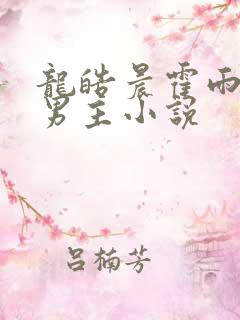 龍皓晨霍雨
男主小說
呂楠芳